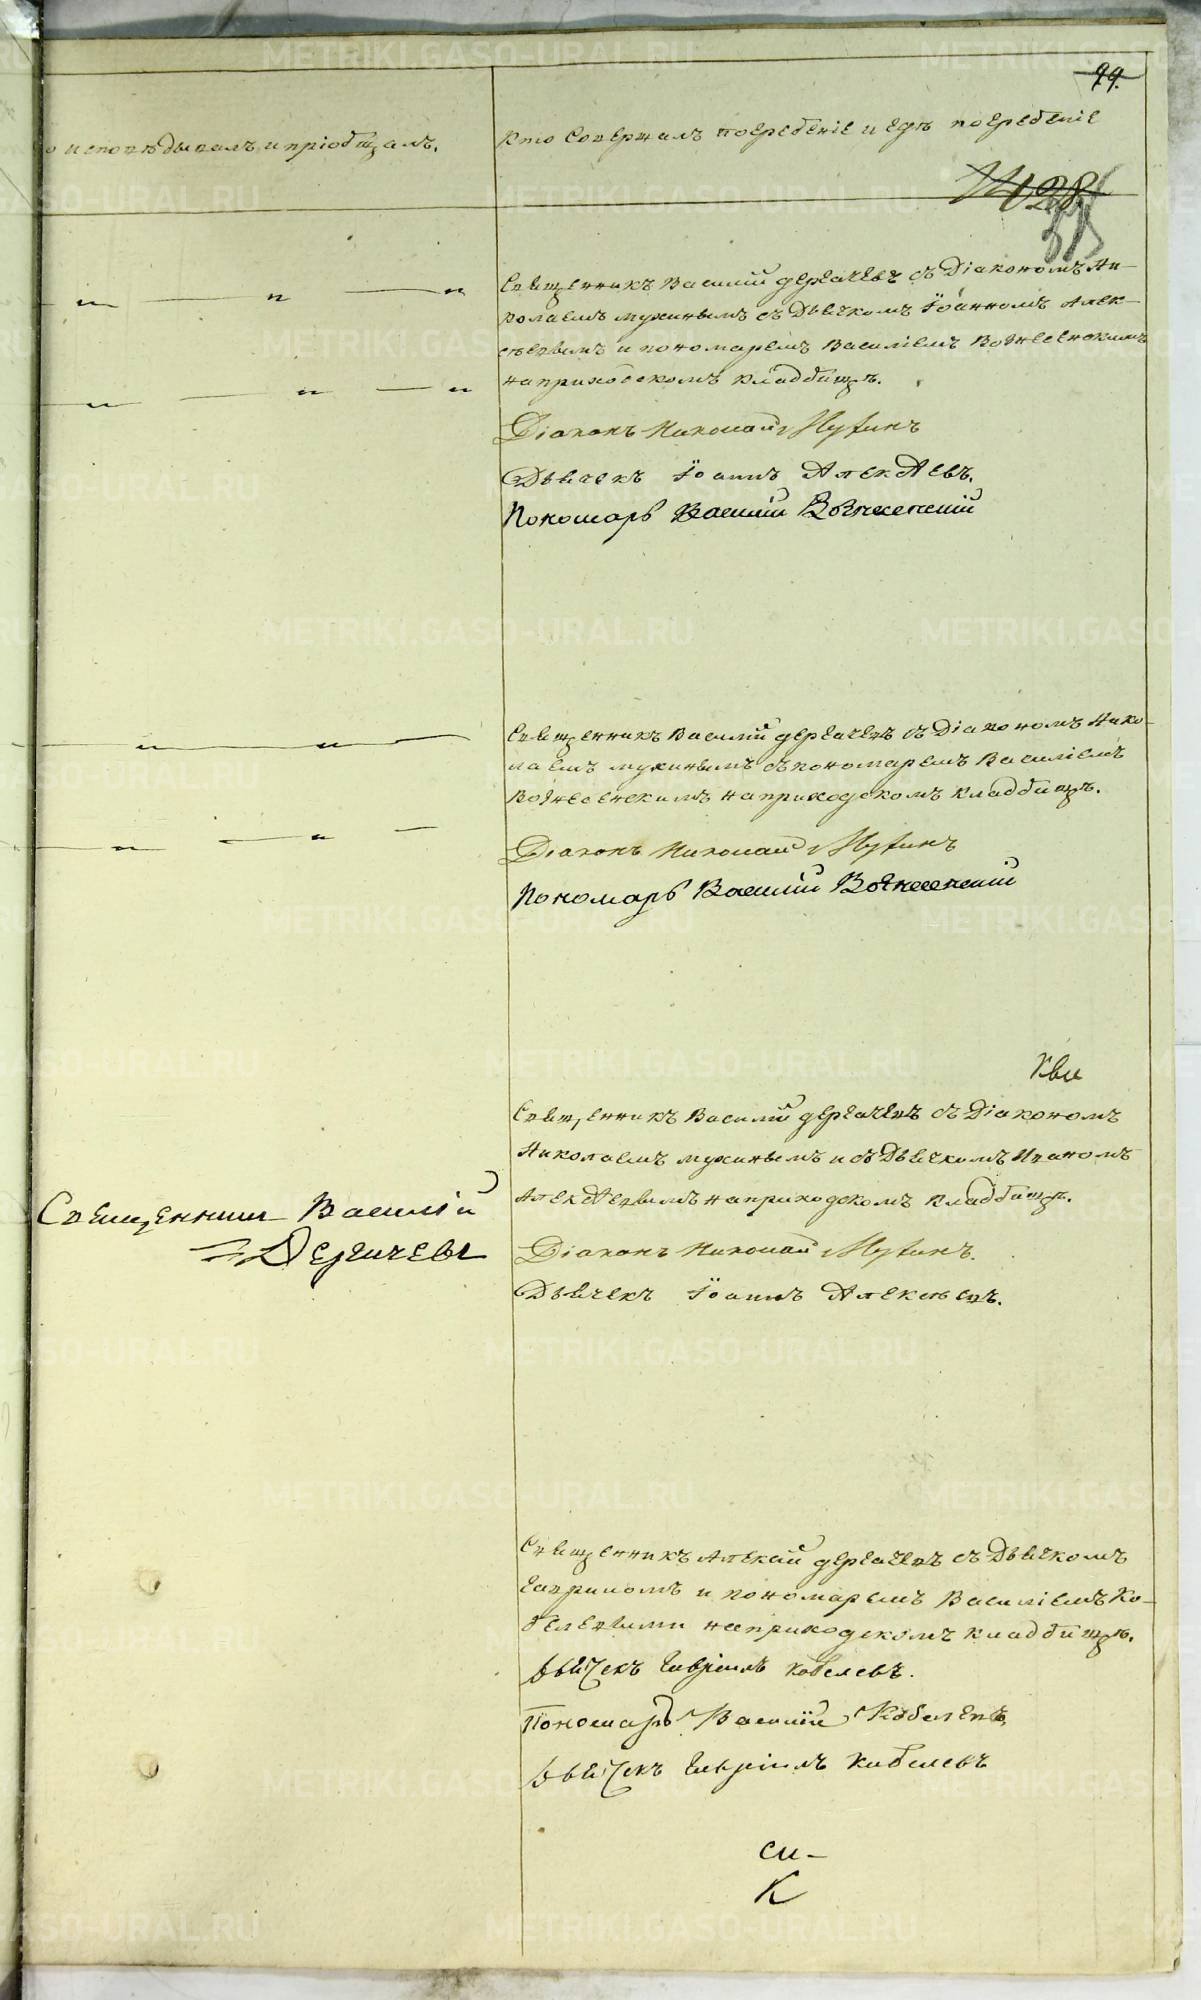 99.
о исповѣдывалъ и пріобщалъ.
Кто Совершалъ погребеніе и гдѣ погребеніе
Священникъ Василий дергачевъ съ Діакономъ Ни-
колаемъ мухинымъ съ Дьячкомъ Іоанномъ Алек-
сѣевымъ и пономаремъ Василіемъ Вознесенскимъ
на приходскомъ кладбищѣ.
Діаконъ Николай Мухинъ
Дьячекъ Іоаннъ Алексѣевъ.
Пономарь Василій Вознесенскій
Священникъ Василий дергачевъ съ Діакономъ Нико-
лаемъ мухинымъ съ пономаремъ Василіемъ
Вознесенскимъ на приходскомъ кладбищѣ.
Діаконъ Николай Мухинъ
Пономарь Василій Вознесенскій
Священникъ Василий дергачевъ съ Діакономъ
Николаемъ мухинымъ и съ Дьячкомъ Иваномъ
Алексѣевымъ на приходскомъ кладбищѣ.
Священник Василій
Дергачевъ
Діаконъ Николай Мухинъ.
Дьячекъ Іоаннъ Алексѣевъ.
Священникъ Алексий дергачевъ съ Дьячкомъ
Гавриломъ и пономаремъ Василіемъ Ко-
белевыми на приходскомъ кладбищѣ.
Дьячекъ Гавріилъ Кобелевъ.
Пономарь Василій Кобелевъ
Дьячекъ Гавріилъ Кобелевъ
си-
К
METRIKI.GASO-URAL.RU